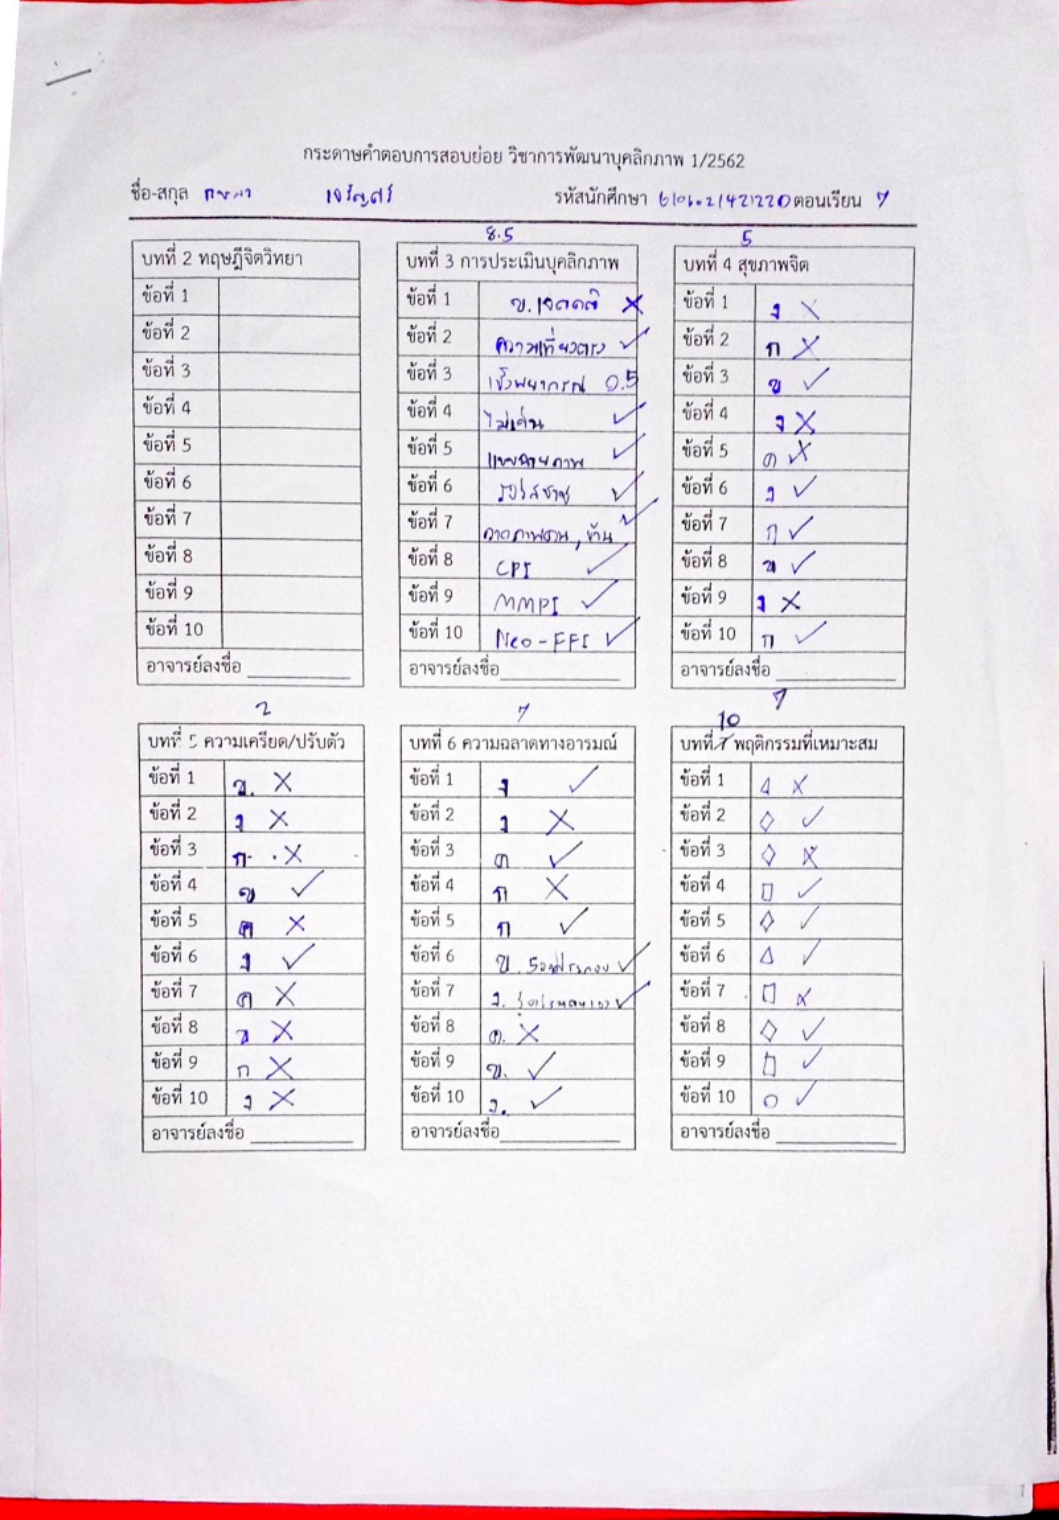 กระดาษคำตอบการสอบย่อย วิชาการพัฒนาบุคลิกภาพ 1/2562
ชื่อ-สกุล รหัสนักศึกษา ตอนเรียน 7
8.5
5
บทที่ 2 ทฤษฎีจิตวิทยา
ข้อที่ 1
ข้อที่ 2
ข้อที่ 3
ข้อที่ 4
ข้อที่ 5
ข้อที่ 6
ข้อที่ 7
ข้อที่ 8
ข้อที่ 9
ข้อที่ 10
อาจารย์ลงชื่อ
บทที่ 3 การประเมินบุคลิกภาพ
ข้อที่ 1 ข. เจตคติ
ข้อที่ 2 ความเที่ยงตรง
ข้อที่ 3 เชิงพยากรณ์ 0.5
ข้อที่ 4 ไม่เด่น
ข้อที่ 5 แบบฉายภาพ
ข้อที่ 6 รอร์สชาช
ข้อที่ 7 วาดภาพคน, บ้าน
ข้อที่ 8 CPI
ข้อที่ 9 MMPI
ข้อที่ 10 Neo-FFI
อาจารย์ลงชื่อ
บทที่ 4 สุขภาพจิต
ข้อที่ 1 ง
ข้อที่ 2 ก
ข้อที่ 3 ข
ข้อที่ 4 ง
ข้อที่ 5 ค
ข้อที่ 6 ง
ข้อที่ 7 ก
ข้อที่ 8 ข
ข้อที่ 9 ง
ข้อที่ 10 ก
อาจารย์ลงชื่อ
2
7
7
10
บทที่ 5 ความเครียด/ปรับตัว
ข้อที่ 1 ข.
ข้อที่ 2 ง
ข้อที่ 3 ก
ข้อที่ 4 ข
ข้อที่ 5 ค
ข้อที่ 6 ง
ข้อที่ 7 ค
ข้อที่ 8 ข
ข้อที่ 9 ก
ข้อที่ 10 ง
อาจารย์ลงชื่อ
บทที่ 6 ความฉลาดทางอารมณ์
ข้อที่ 1 ง
ข้อที่ 2 ง
ข้อที่ 3 ค
ข้อที่ 4 ก
ข้อที่ 5 ก
ข้อที่ 6 ข.
ข้อที่ 7 ง.
ข้อที่ 8 ค.
ข้อที่ 9 ข.
ข้อที่ 10 ง.
อาจารย์ลงชื่อ
บทที่ 7 พฤติกรรมที่เหมาะสม
ข้อที่ 1
ข้อที่ 2
ข้อที่ 3
ข้อที่ 4
ข้อที่ 5
ข้อที่ 6
ข้อที่ 7
ข้อที่ 8
ข้อที่ 9
ข้อที่ 10
อาจารย์ลงชื่อ